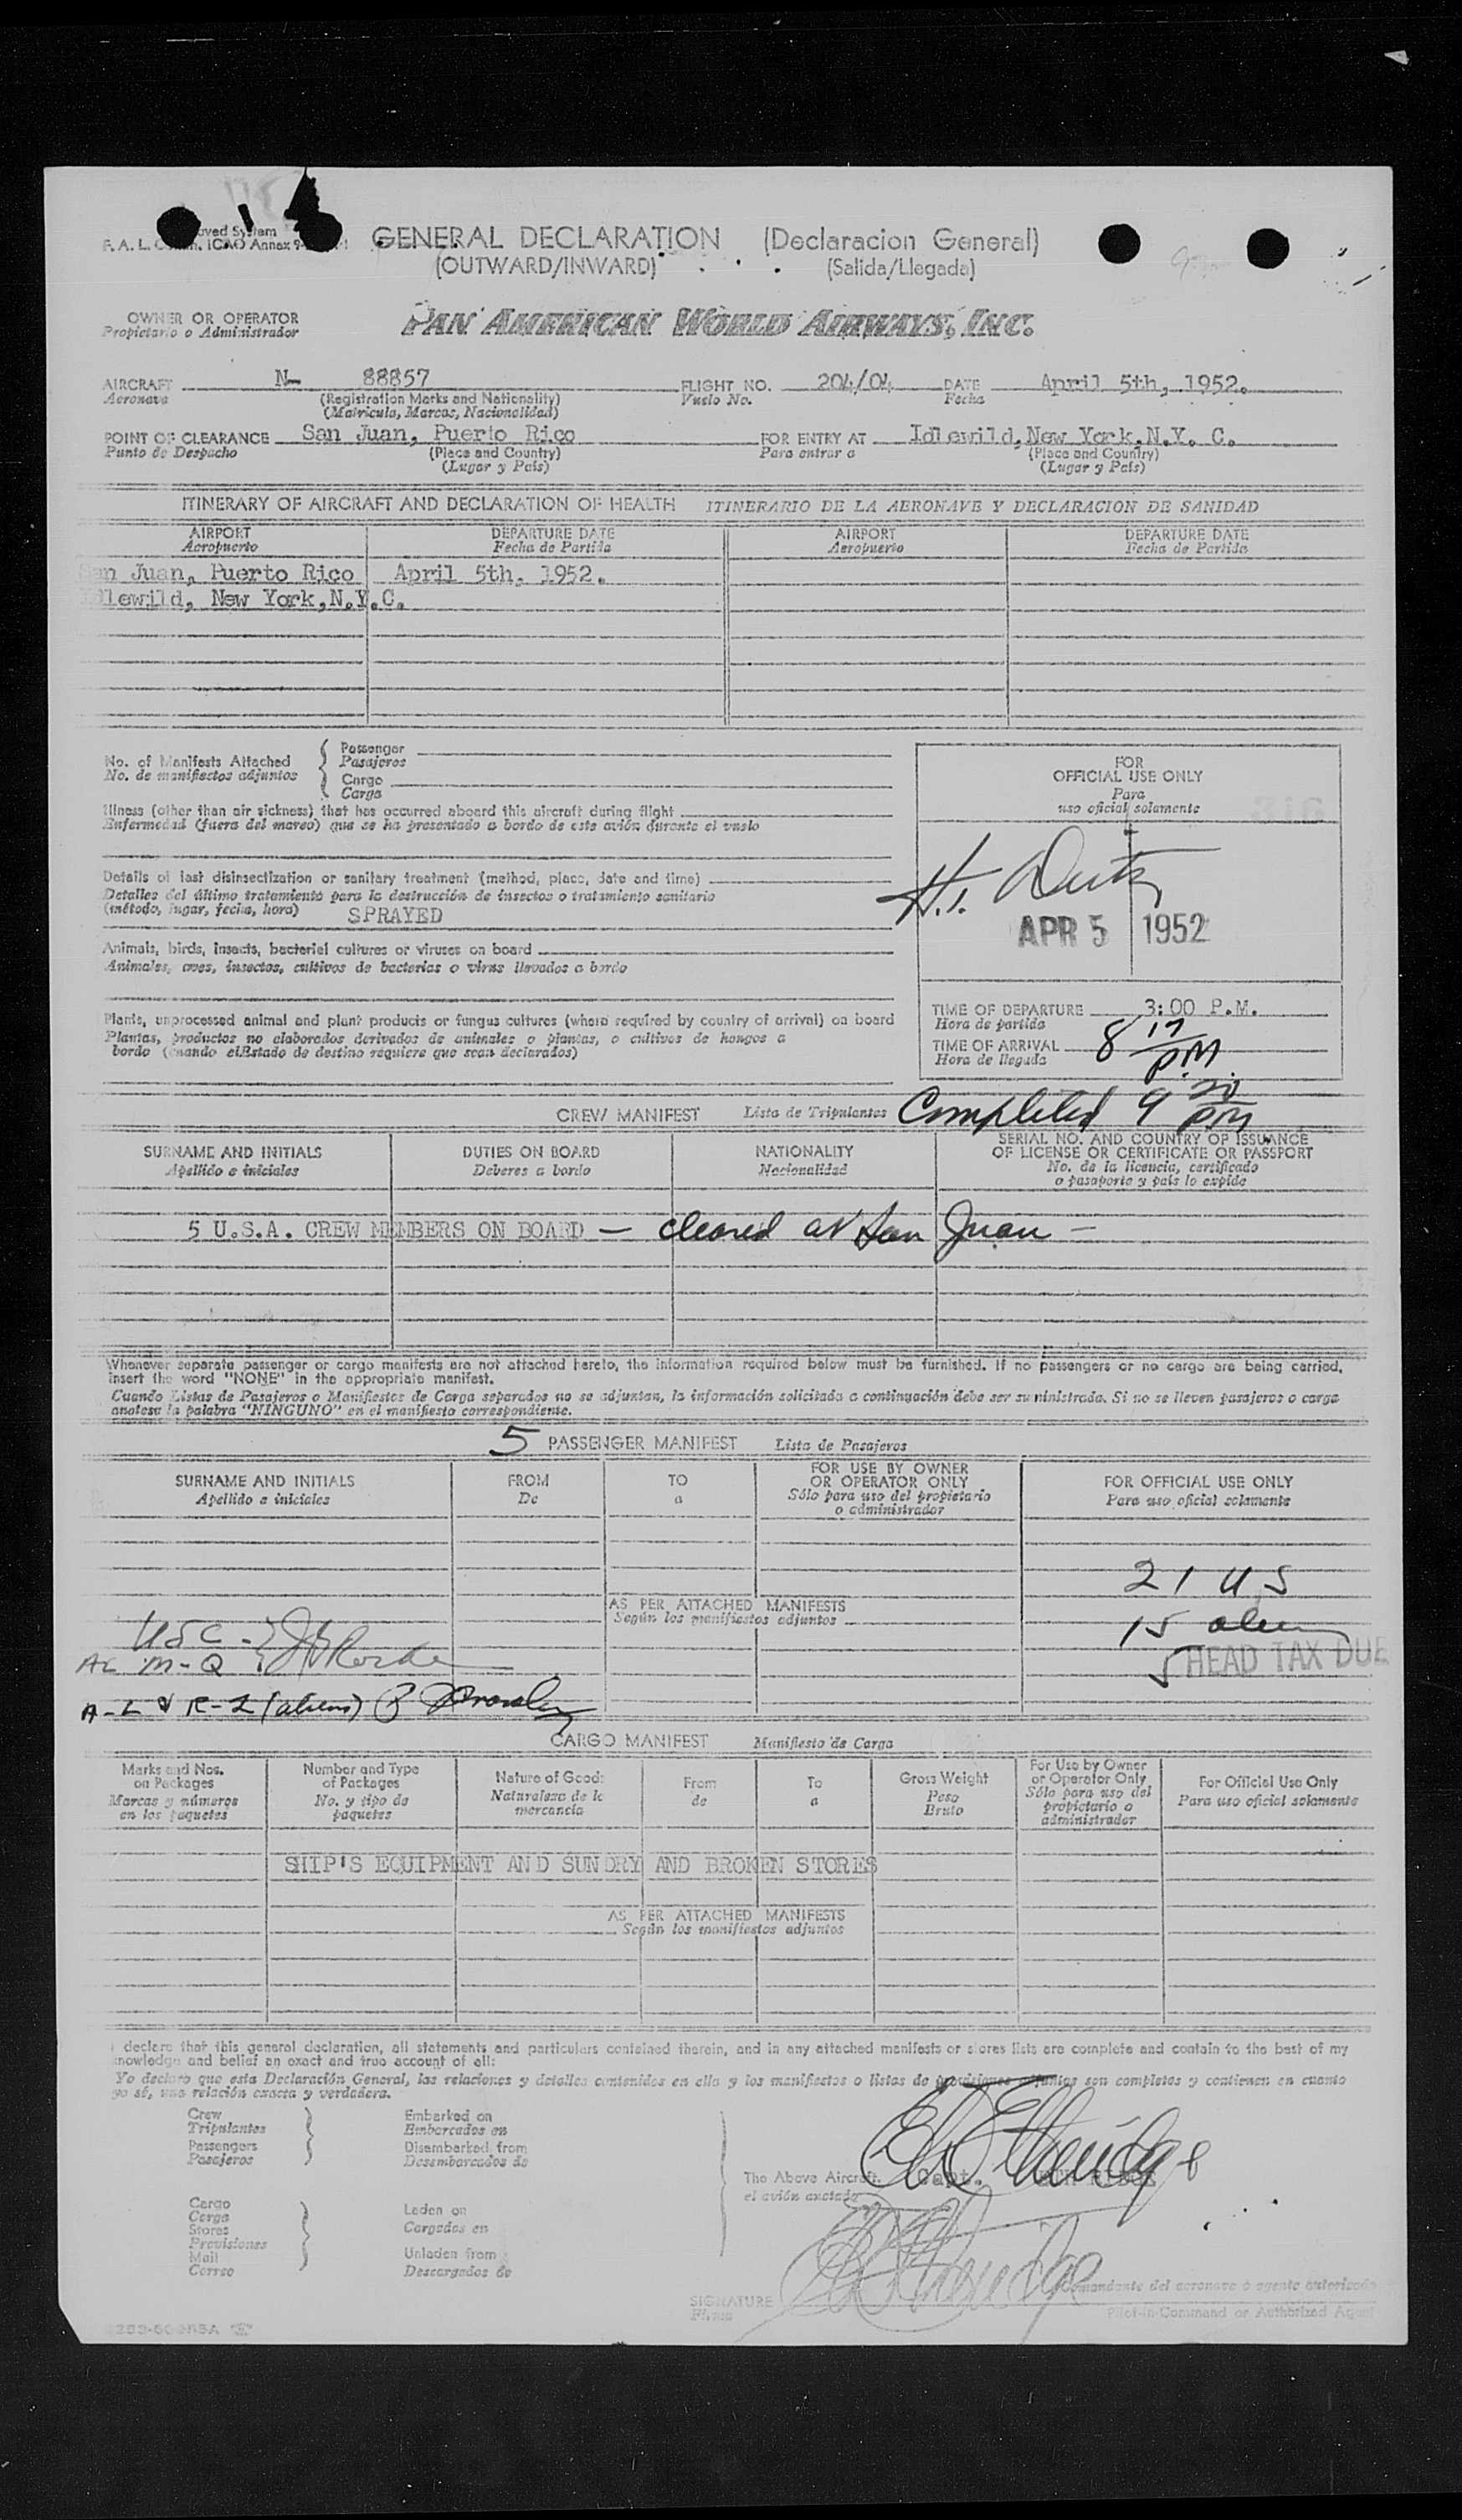 GENERAL DECLARATION (Declaracion General)
(OUTWARD/INWARD) (Salida/Llegada)
OWNER OR OPERATOR
Propietario o Administrador
PAN AMERICAN WORLD AIRWAYS, INC.
AIRCRAFT N- 88857 FLIGHT NO. 204/04 DATE April 5th, 1952.
Aeronave (Registration Marks and Nationality) Vuelo No. Fecha
(Matrícula, Marcas, Nacionalidad)
POINT OF CLEARANCE San Juan, Puerto Rico FOR ENTRY AT Idlewild, New York, N.Y. C.
Punto de Despacho (Place and Country) Para entrar a (Place and Country)
(Lugar y País) (Lugar y País)
ITINERARY OF AIRCRAFT AND DECLARATION OF HEALTH ITINERARIO DE LA AERONAVE Y DECLARACION DE SANIDAD
AIRPORT DEPARTURE DATE AIRPORT DEPARTURE DATE
Aeropuerto Fecha de Partida Aeropuerto Fecha de Partida
Juan, Puerto Rico April 5th, 1952.
New York, N.Y.C.
No. of Manifests Attached
No. de manifiestos adjuntos
Passenger
Pasajeros
Cargo
Carga
FOR
OFFICIAL USE ONLY
Para
uso oficial solamente
Illness (other than air sickness) that has occurred aboard this aircraft during flight
Enfermedad (fuera del mareo) que se ha presentado a bordo de este avión durante el vuelo
Details of last disinsectization or sanitary treatment (method, place, date and time)
Detalles del último tratamiento para la destrucción de insectos o tratamiento sanitario
(método, lugar, fecha, hora) SPRAYED
APR 5 1952
Animals, birds, insects, bacterial cultures or viruses on board
Animales, aves, insectos, cultivos de bacterias o virus llevados a bordo
Plants, unprocessed animal and plant products or fungus cultures (where required by country of arrival) on board
Plantas, productos no elaborados derivados de animales o plantas, o cultivos de hongos a
bordo (cuando el Estado de destino requiere que sean declarados)
TIME OF DEPARTURE 3:00 P.M.
Hora de partida
TIME OF ARRIVAL 8 17 PM
Hora de llegada
CREW MANIFEST Lista de Tripulantes Completed 9 PM
SURNAME AND INITIALS DUTIES ON BOARD NATIONALITY SERIAL NO. AND COUNTRY OF ISSUANCE
OF LICENSE OR CERTIFICATE OR PASSPORT
Apellido e iniciales Deberes a bordo Nacionalidad No. de la licencia, certificado
o pasaporte y país lo expide
5 U.S.A. CREW MEMBERS ON BOARD — cleared at San Juan —
Whenever separate passenger or cargo manifests are not attached hereto, the information required below must be furnished. If no passengers or no cargo are being carried,
insert the word "NONE" in the appropriate manifest.
Cuando Listas de Pasajeros o Manifiestos de Carga separados no se adjuntan, la información solicitada a continuación debe ser suministrada. Si no se lleven pasajeros o carga
anotese la palabra "NINGUNO" en el manifiesto correspondiente.
5 PASSENGER MANIFEST Lista de Pasajeros
SURNAME AND INITIALS FROM TO FOR USE BY OWNER
OR OPERATOR ONLY FOR OFFICIAL USE ONLY
Apellido e iniciales De a Sólo para uso del propietario
o administrador Para uso oficial solamente
21 US
AS PER ATTACHED MANIFESTS
Según los manifiestos adjuntos
15 alien
USC
M-Q
5 HEAD TAX DUE
(aliens)
CARGO MANIFEST Manifiesto de Carga
Marks and Nos.
on Packages
Marcas y números
en los paquetes
Number and Type
of Packages
No. y tipo de
paquetes
Nature of Goods
Naturaleza de la
mercancía
From
de
To
a
Gross Weight
Peso
Bruto
For Use by Owner
or Operator Only
Sólo para uso del
propietario o
administrador
For Official Use Only
Para uso oficial solamente
SHIP'S EQUIPMENT AND SUNDRY AND BROKEN STORES
AS PER ATTACHED MANIFESTS
Según los manifiestos adjuntos
I declare that this general declaration, all statements and particulars contained therein, and in any attached manifests or stores lists are complete and contain to the best of my
knowledge and belief an exact and true account of all:
Yo declaro que esta Declaración General, las relaciones y detalles contenidos en ella y los manifiestos o listas de provisiones adjuntas son completos y contienen en cuanto
yo sé, una relación exacta y verdadera.
Crew
Tripulantes
Passengers
Pasajeros
Embarked on
Embarcados en
Disembarked from
Desembarcados de
The Above Aircraft. Capt.
el avión anotado
Cargo
Carga
Stores
Provisiones
Mail
Correo
Laden on
Cargados en
Unladen from
Descargados de
SIGNATURE
Firma
Comandante del aeronave o agente autorizado
Pilot-in-Command or Authorized Agent